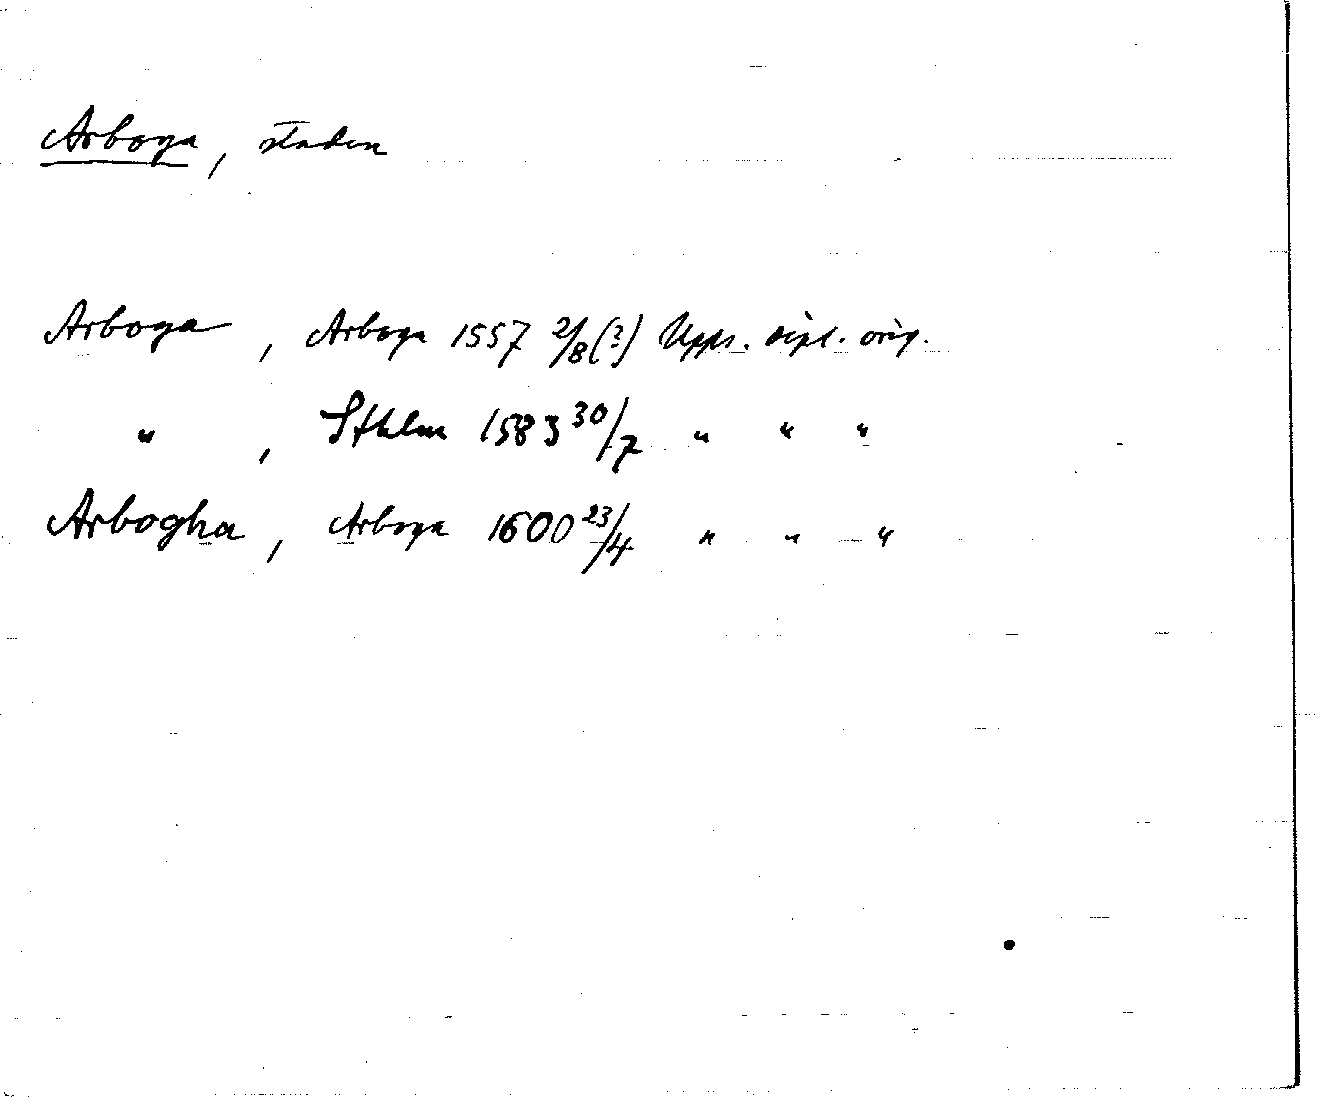 Arboga, staden
Arboga, Arboga 1557 2/8 (?) Upps. dipl. orig.
" , Sthlm 1583 30/7 " " "
Arbogha, Arboga 1600 23/4 " " "